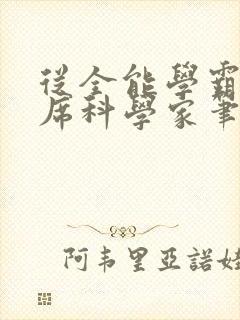 從全能學霸
席科學家筆
阿韦里亞諾娃